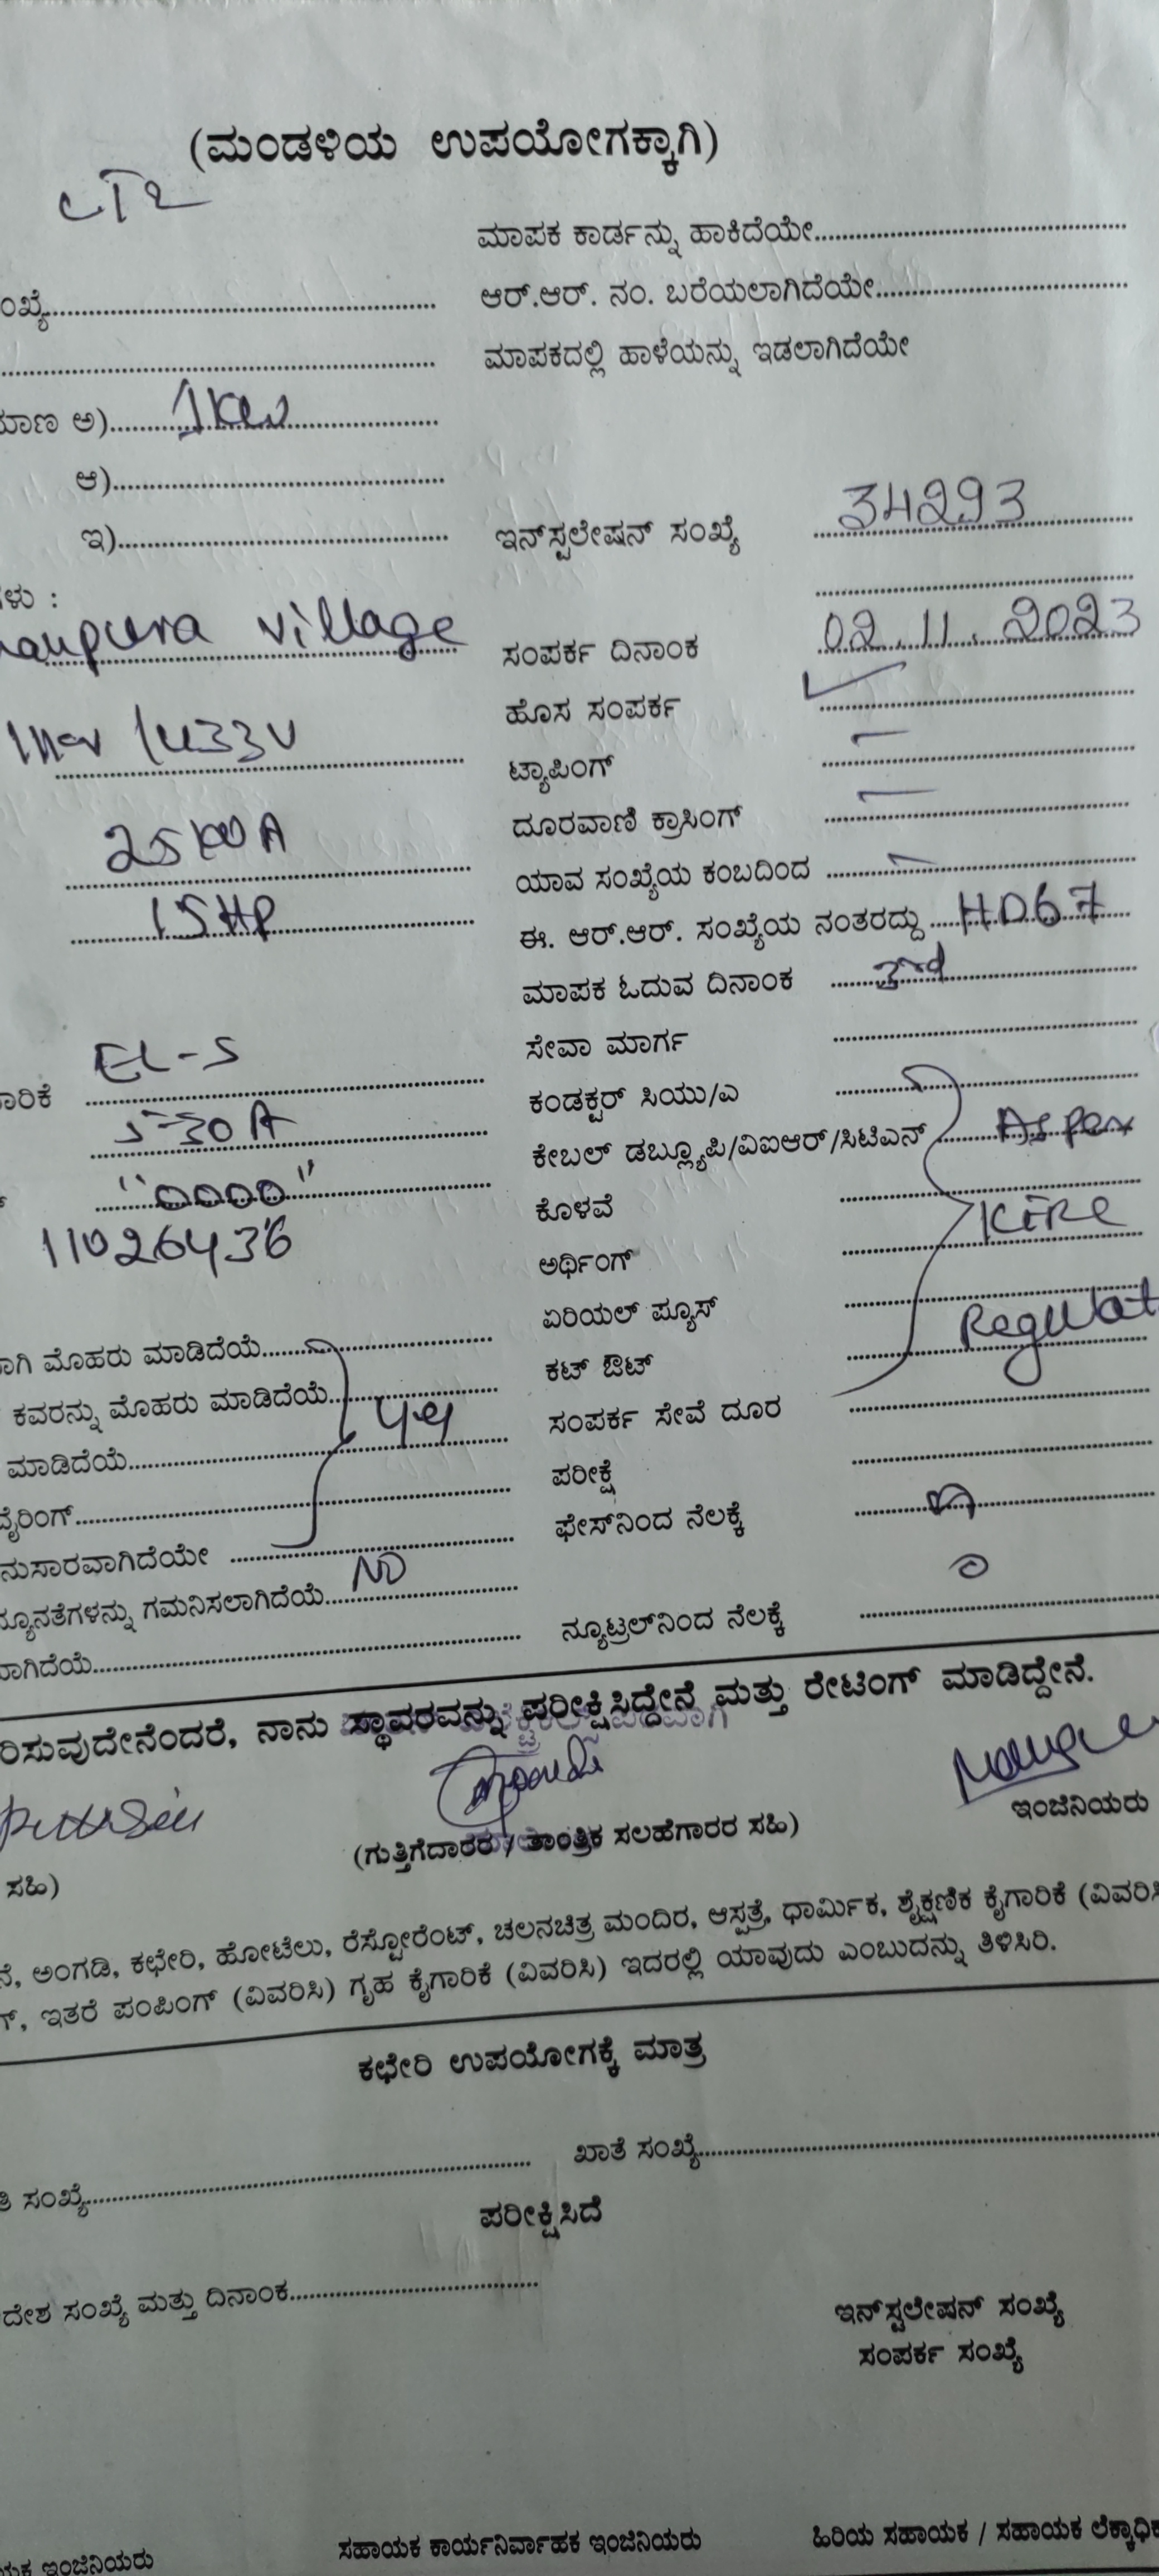 (ಮಂಡಳಿಯ ಉಪಯೋಗಕ್ಕಾಗಿ)
LT2
ಮಾಪಕ ಕಾರ್ಡನ್ನು ಹಾಕಿದೆಯೇ
ಂಖ್ಯೆ ಆರ್.ಆರ್. ನಂ. ಬರೆಯಲಾಗಿದೆಯೇ
ಮಾಪಕದಲ್ಲಿ ಹಾಳೆಯನ್ನು ಇಡಲಾಗಿದೆಯೇ
ಮಾಣ ಅ) 1KW
ಆ)
ಇ) ಇನ್‌ಸ್ಟಲೇಷನ್ ಸಂಖ್ಯೆ 34293
ಗಳು :
village ಸಂಪರ್ಕ ದಿನಾಂಕ 02.11.2023
ಹೊಸ ಸಂಪರ್ಕ ✓
11kv /433V ಟ್ಯಾಪಿಂಗ್ –
ದೂರವಾಣಿ ಕ್ರಾಸಿಂಗ್ –
25KVA ಯಾವ ಸಂಖ್ಯೆಯ ಕಂಬದಿಂದ –
15HP ಈ. ಆರ್.ಆರ್. ಸಂಖ್ಯೆಯ ನಂತರದ್ದು HD67
ಮಾಪಕ ಓದುವ ದಿನಾಂಕ 3rd
ಸೇವಾ ಮಾರ್ಗ
ಾರಿಕೆ EL-S ಕಂಡಕ್ಟರ್ ಸಿಯು/ಎ
5-30A ಕೇಬಲ್ ಡಬ್ಲ್ಯೂಪಿ/ವಿಐಆರ್/ಸಿಟಿಎನ್ As per
"0000" ಕೊಳವೆ
11026436 ಅರ್ಥಿಂಗ್ KERC
ಏರಿಯಲ್ ಫ್ಯೂಸ್
ಾಗಿ ಮೊಹರು ಮಾಡಿದೆಯೆ ಕಟ್ ಔಟ್ Regulat
ಕವರನ್ನು ಮೊಹರು ಮಾಡಿದೆಯೆ ಸಂಪರ್ಕ ಸೇವೆ ದೂರ
ಮಾಡಿದೆಯೆ ಪರೀಕ್ಷೆ
ವೈರಿಂಗ್ ಫೇಸ್‌ನಿಂದ ನೆಲಕ್ಕೆ
ನುಸಾರವಾಗಿದೆಯೇ
ನ್ಯೂನತೆಗಳನ್ನು ಗಮನಿಸಲಾಗಿದೆಯೆ NO ನ್ಯೂಟ್ರಲ್‌ನಿಂದ ನೆಲಕ್ಕೆ 0
ಾಗಿದೆಯೆ
ರಿಸುವುದೇನೆಂದರೆ, ನಾನು ಸ್ಥಾವರವನ್ನು ಪರೀಕ್ಷಿಸಿದ್ದೇನೆ ಮತ್ತು ರೇಟಿಂಗ್ ಮಾಡಿದ್ದೇನೆ.
ಸಹಿ) (ಗುತ್ತಿಗೆದಾರರ / ತಾಂತ್ರಿಕ ಸಲಹೆಗಾರರ ಸಹಿ) ಇಂಜಿನಿಯರು
ನೆ, ಅಂಗಡಿ, ಕಛೇರಿ, ಹೋಟೆಲು, ರೆಸ್ಟೋರೆಂಟ್, ಚಲನಚಿತ್ರ ಮಂದಿರ, ಆಸ್ಪತ್ರೆ, ಧಾರ್ಮಿಕ, ಶೈಕ್ಷಣಿಕ ಕೈಗಾರಿಕೆ (ವಿವರಿಸಿ
ಗ್, ಇತರೆ ಪಂಪಿಂಗ್ (ವಿವರಿಸಿ) ಗೃಹ ಕೈಗಾರಿಕೆ (ವಿವರಿಸಿ) ಇದರಲ್ಲಿ ಯಾವುದು ಎಂಬುದನ್ನು ತಿಳಿಸಿರಿ.
ಕಛೇರಿ ಉಪಯೋಗಕ್ಕೆ ಮಾತ್ರ
ತಿ ಸಂಖ್ಯೆ ಖಾತೆ ಸಂಖ್ಯೆ
ಪರೀಕ್ಷಿಸಿದೆ
ದೇಶ ಸಂಖ್ಯೆ ಮತ್ತು ದಿನಾಂಕ
ಇನ್‌ಸ್ಟಲೇಷನ್ ಸಂಖ್ಯೆ
ಸಂಪರ್ಕ ಸಂಖ್ಯೆ
ಯಕ ಇಂಜಿನಿಯರು ಸಹಾಯಕ ಕಾರ್ಯನಿರ್ವಾಹಕ ಇಂಜಿನಿಯರು ಹಿರಿಯ ಸಹಾಯಕ / ಸಹಾಯಕ ಲೆಕ್ಕಾಧಿಕ